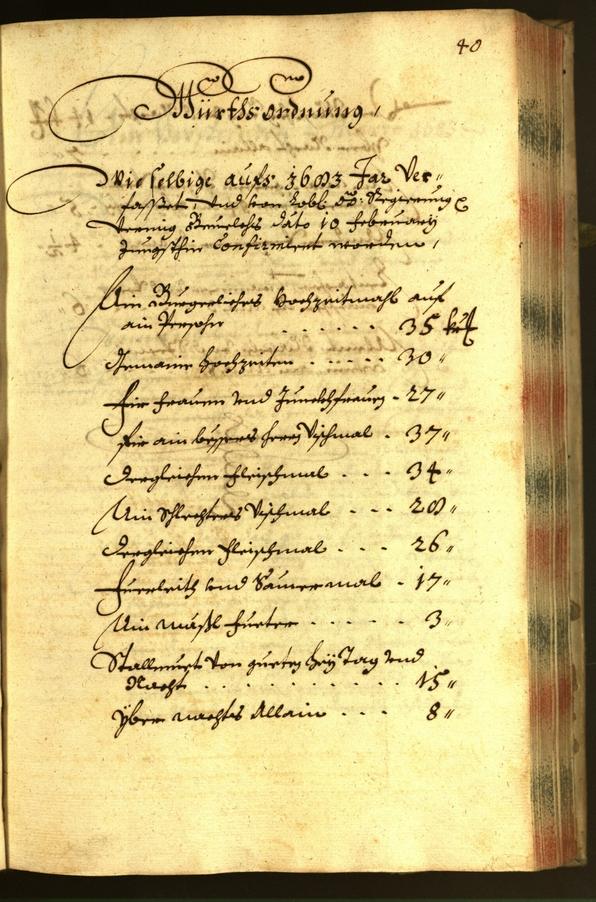 40
Würthsordnung,
Wie selbige aufs 1683 Jar Ver-
fasset, Und von Lobl: Regierung
vermig Beuelchs dato 10 February
Jüngsthin Confirmiert worden,
Ain Burgerliches Hochzeitmahl auf
ain Persohn . . . . . . 35 kr
Gemaine Hochzeiten . . . . . . 30 "
Für Frauen Vnd Junckhfrauen - 27 "
Für ain bessers Herrn Vischmal . 37 "
Dergleichen Fleischmal . . . 34 "
Ain Schlechters Vischmal . . . 28 "
Dergleichen Fleischmal . . . 26 "
Fuerleith vnd Sämermal - 17 "
Ain Mässl Fueter . . . . . 3 "
Stallmuet von guetem Hey Tag Vnd
Nacht . . . . . . . . . . 15 "
Yber nachts Allain . . . 8 "